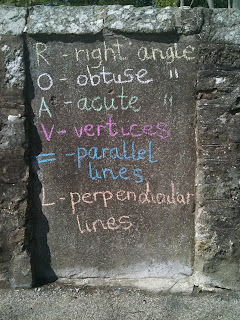 R - right angle
O - obtuse "
A - acute "
V - vertices
= - parallel
lines
L - perpendicular
lines